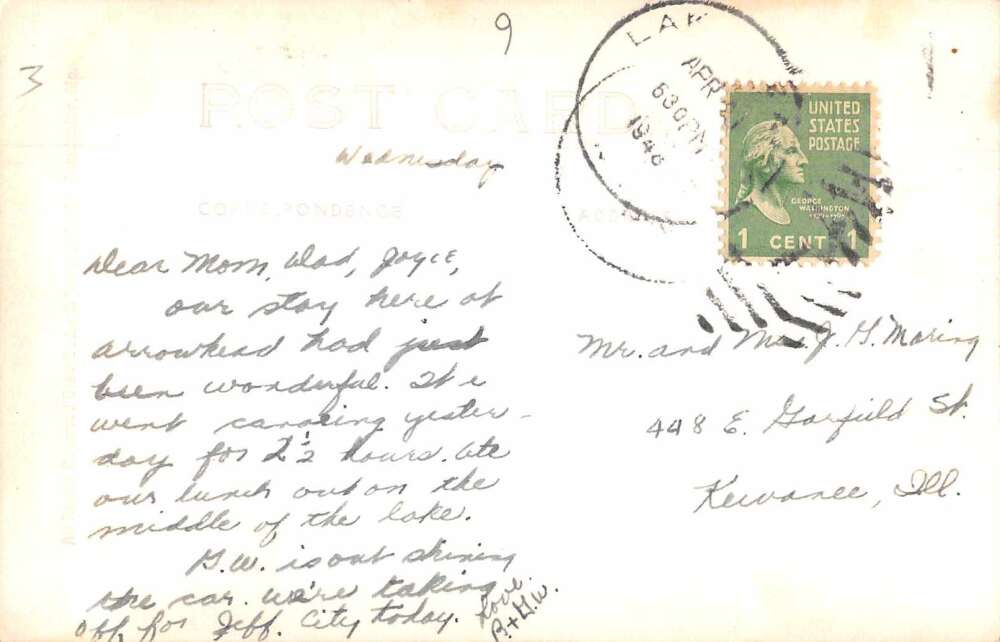 9
3
POST CARD
LAK
APR
630 PM
1946
UNITED
STATES
POSTAGE
GEORGE
WASHINGTON
1 CENT 1
Wednesday
CORRESPONDENCE
ADDRESS
Dear Mom, Dad, Joyce,
our stay here at
arrowhead had just
been wonderful. We
went canoeing yester-
day for 2½ hours. Ate
our lunch out on the
middle of the lake.
G.W. is out shining
the car. We're taking
off for Jeff. City today.
Love
B + G.W.
Mr. and Mrs. J. G. Maring
448 E. Garfield St.
Kewanee, Ill.